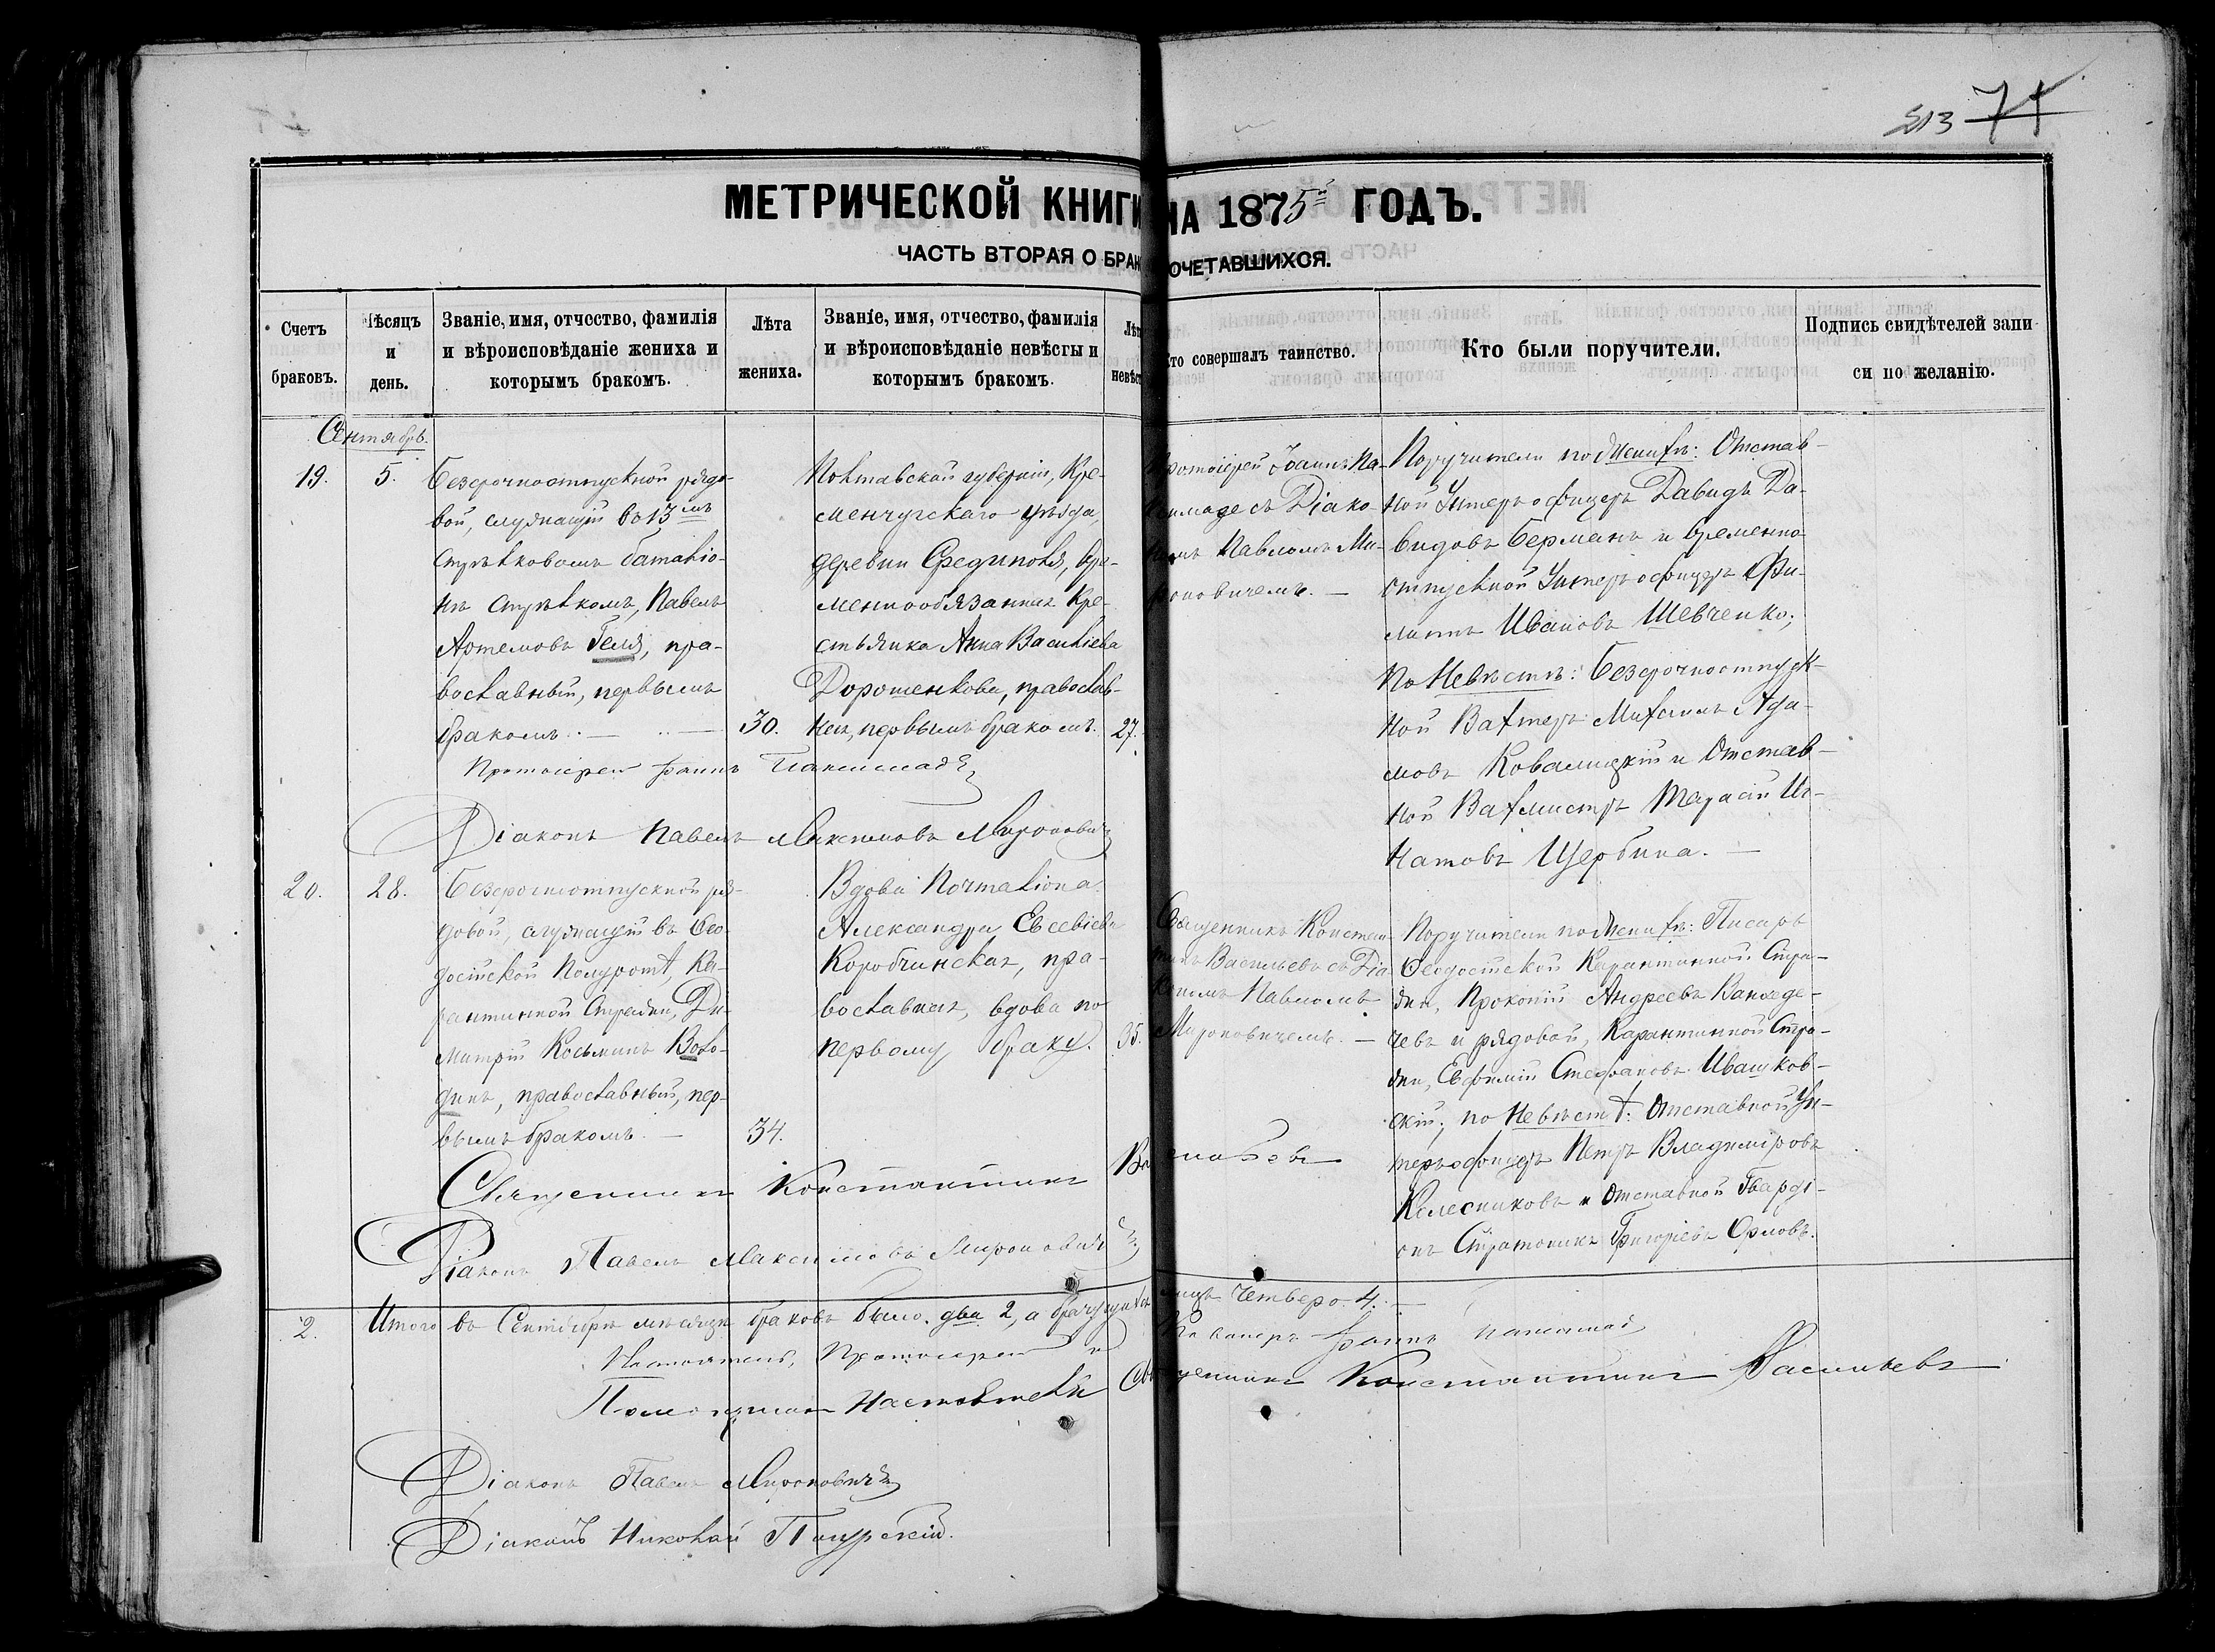 213 71
МЕТРИЧЕСКОЙ КНИГИ НА 1875й ГОДЪ.
ЧАСТЬ ВТОРАЯ О БРАКОСОЧЕТАВШИХСЯ.
Счетъ браковъ.
Мѣсяцъ и день.
Званіе, имя, отчество, фамилія и вѣроисповѣданіе жениха и которымъ бракомъ.
Лѣта жениха.
Званіе, имя, отчество, фамилія и вѣроисповѣданіе невѣсты и которымъ бракомъ.
Лѣта невѣсты
Кто совершалъ таинство.
Кто были поручители.
Подпись свидѣтелей записи по желанію.
Сентябрь.
19.
5.
Безсрочноотпускной рядо-
вой, служащій въ 13мъ
Стрѣлковомъ баталіо-
нѣ стрѣлкомъ, Павелъ
Артемовъ Геля, пра-
вославный, первымъ
бракомъ. —
30.
Полтавской губерніи, Кре-
менчугскаго уѣзда,
деревни Фединовки, вре-
меннообязанная Кре-
стьянка Анна Василіева
Дорошенкова, православ-
ная, первымъ бракомъ.
27.
Протоіерей Іоаннъ Па-
симаде съ Діако-
номъ Павломъ Ми-
роновичемъ. —
Поручители по Женихѣ: Отстав-
ной Унтеръ офицеръ Давидъ Да-
видовъ Берманъ и временно
отпускной Унтеръ офицеръ Фи-
липпъ Ивановъ Шевченко;
По Невѣстѣ: Безсрочноотпуск-
ной Вахтеръ Михаилъ Ада-
мовъ Ковалицкій и Отстав-
ной Вахмистръ Тарасій Иг-
натовъ Щербина. —
Протоіерей Іоаннъ
Діаконъ Павелъ Максимовъ Мироновичъ
20.
28.
Безсрочноотпускной ря-
довой, служащій въ Ѳео-
досійской Полуротѣ, Ка-
рантинной Стражи, Ди-
митрій Косьминъ Воло-
динъ, православный, пер-
вымъ бракомъ. —
34.
Вдова Почталіона
Александра Евсевіева
Коробчинская, пра-
вославная, вдова по
первому браку.
35.
Священникъ Констан-
тинъ Васильевъ съ Діа-
кономъ Павломъ
Мироновичемъ. —
Поручители по Женихѣ: Писарь
Ѳеодосійской Карантинной Стра-
жи, Прокопій Андреевъ
и рядовой, Карантинной Стра-
жи, Евфимій Стефановъ Ивашков-
скій, по Невѣстѣ: Отставной Ун-
теръ офицеръ Петръ Владиміровъ
Колесниковъ и Отставной Гварді-
онъ Стратоникъ Григорьевъ Орловъ.
Священникъ Константинъ Васильевъ
Діаконъ Павелъ Максимовъ Мироновичъ
2.
Итого въ Сентябрѣ мѣсяцѣ браковъ было два 2, а брачущихся лицъ четверо 4. —
Настоятель, Протоіерей и Кавалеръ Іоаннъ
Помощникъ Настоятеля Священникъ Константинъ Васильевъ
Діаконъ Павелъ Мироновичъ
Діаконъ Николай